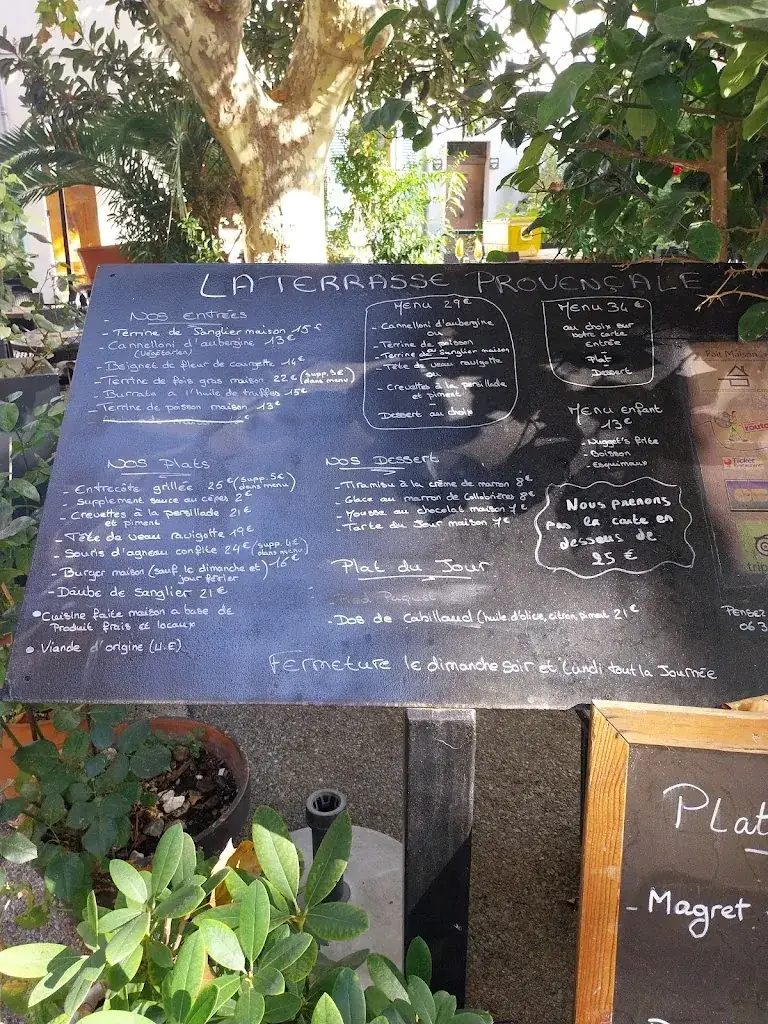 LA TERRASSE PROVENÇALE
Nos Entrées
- Terrine de Sanglier maison 15€
- Cannelloni d'aubergine 13€
(Végétarien)
- Beignet de fleur de courgette 14€
- Terrine de fois gras maison 22€ (supp. 5€ dans menu)
- Burrata a l'huile de truffes 15€
- Terrine de poisson maison 13€
Nos Plats
- Entrecôte grillée 25€ (supp. 5€ dans menu)
- Supplement sauce au cèpes 2€
- Crevettes à la persillade 21€
et piment
- Tête de veau ravigotte 19€
- Souris d'agneau confite 24€ (supp. 4€ dans menu)
- Burger maison (sauf le dimanche et jour férier) 16€
- Daube de Sanglier 21€
• Cuisine faite maison a base de
Produit frais et locaux
• Viande d'origine (U.E)
Menu 29€
- Cannelloni d'aubergine
ou
- Terrine de poisson
- Terrine de Sanglier maison
- Tête de veau ravigotte
ou
- Crevettes à la persillade
et piment
Dessert au choix
Menu 34€
au choix sur
notre carte
Entrée
Plat
Dessert
Menu enfant
13€
- Nugget's frite
- Boisson
- Esquimaux
Nos Dessert
- Tiramisu à la crème de marron 8€
- Glace au marron de Collobrières 8€
- Mousse au chocolat maison 7€
- Tarte du Jour maison 7€
Nous prenons
pas la carte en
dessous de
25€
Plat du Jour
- Dos de Cabillaud (huile d'olive, citron, piment 21€
Fermeture le dimanche soir et Lundi tout la Journée
Fait Maison
Ticket
Restaurant
trip
Pensez
06 3
Plat
- Magret